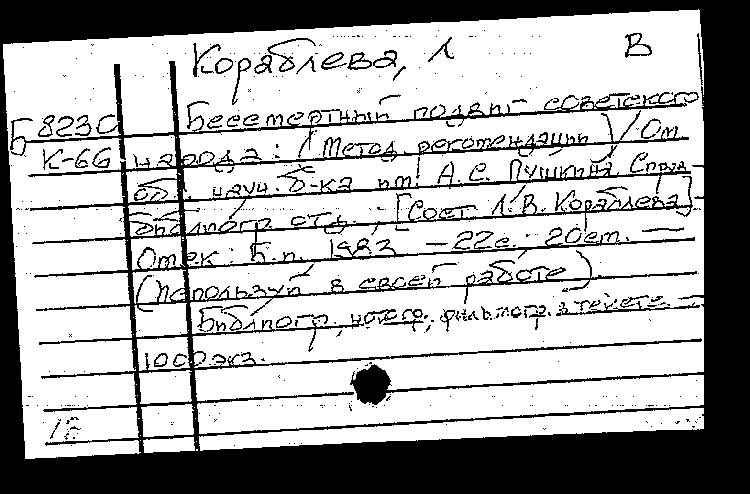 Кораблева, Л В
Б 823С Бессмертный подвиг советского
К-66 народа: (Метод рекомендации) / Ом.
обл. науч. б-ка им. А.С. Пушкина. Справ-
библиогр. отд.; [Сост. Л.В. Кораблева] -
Омск: Б.и., 1983 - 22с.; 20см. —
(Используй в своей работе).
Библиогр., нотогр., фильмогр. в тексте. —
1000экз.